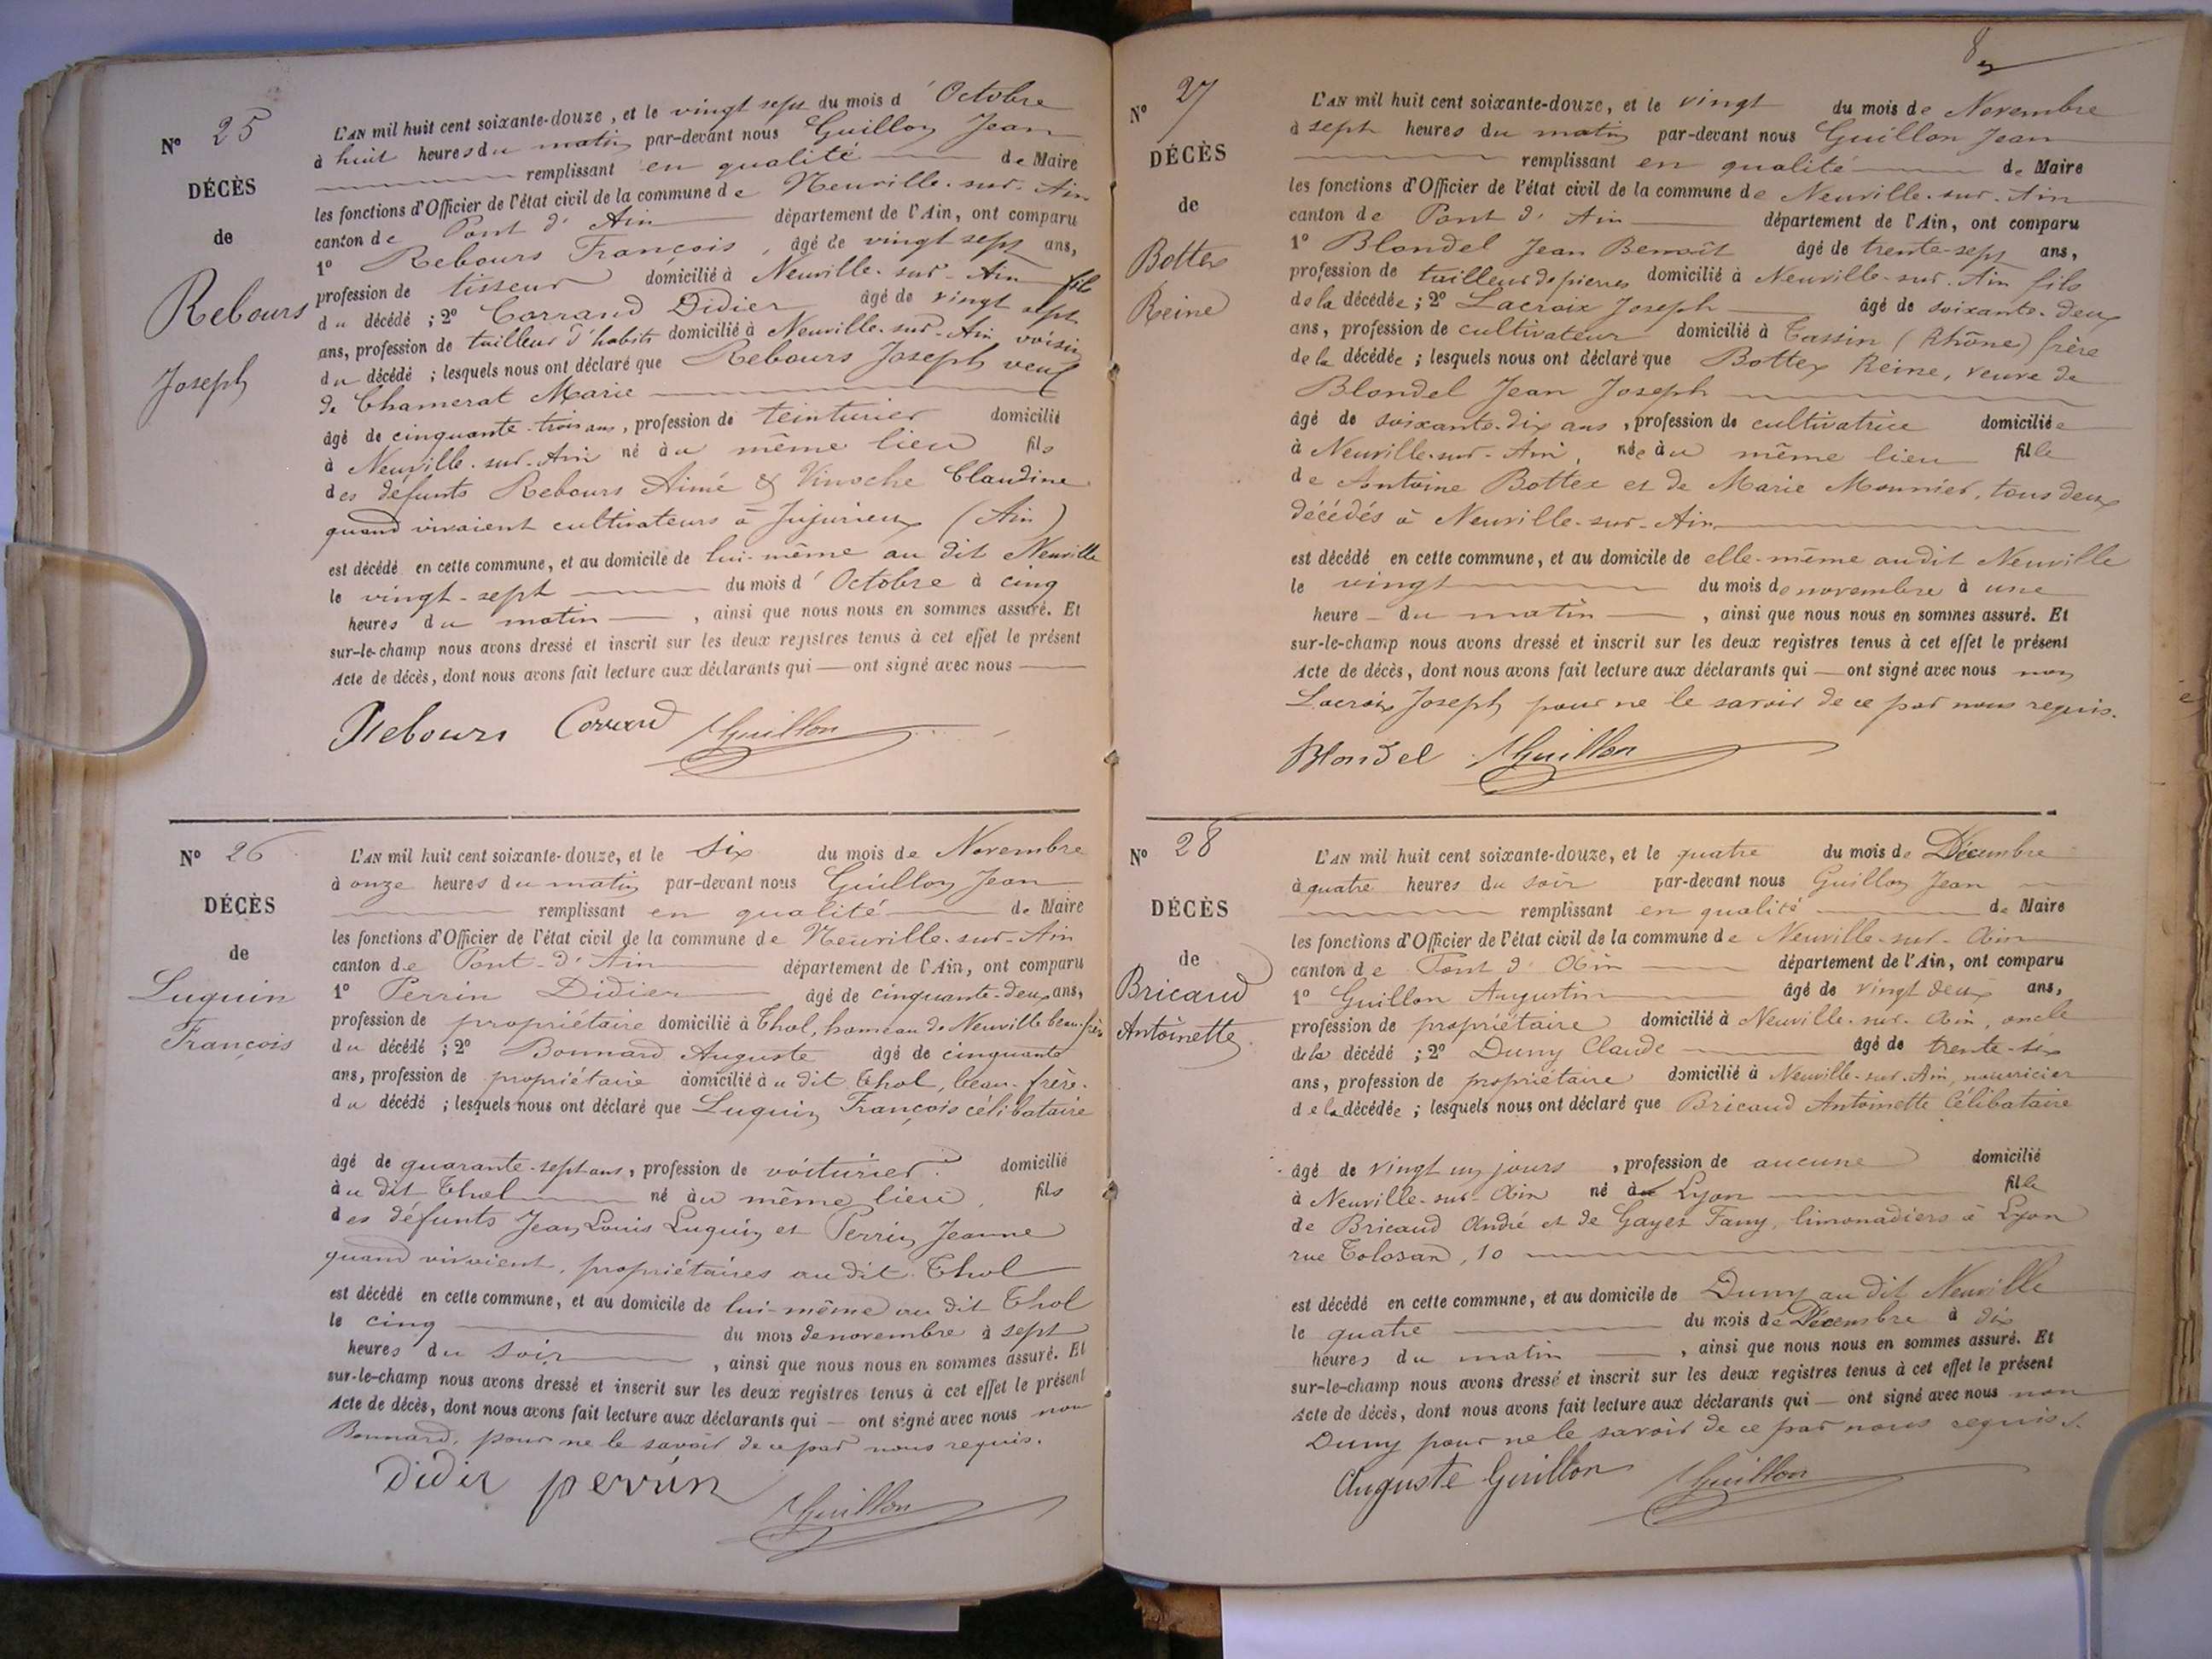 Nº 25
DÉCÈS
de
Rebours
Joseph
L'AN mil huit cent soixante-douze, et le vingt sept du mois d'Octobre
à huit heures du matin par-devant nous Guillon Jean
remplissant en qualité de Maire
les fonctions d'Officier de l'état civil de la commune de Neuville-sur-Ain
canton de Pont d'Ain département de l'Ain, ont comparu
1º Rebours François, âgé de vingt sept ans,
profession de tisseur domicilié à Neuville-sur-Ain fils
du décédé ; 2º Corrand Didier âgé de vingt sept
ans, profession de tailleur d'habits domicilié à Neuville-sur-Ain voisin
du décédé ; lesquels nous ont déclaré que Rebours Joseph veuf
de Chamerat Marie
âgé de cinquante-trois ans, profession de teinturier domicilié
à Neuville-sur-Ain né au même lieu fils
des défunts Rebours Aimé & Vinoche Claudine
quand vivaient cultivateurs à Jujurieux (Ain)
est décédé en cette commune, et au domicile de lui-même au dit Neuville
le vingt-sept du mois d'Octobre à cinq
heures du matin, ainsi que nous nous en sommes assuré. Et
sur-le-champ nous avons dressé et inscrit sur les deux registres tenus à cet effet le présent
Acte de décès, dont nous avons fait lecture aux déclarants qui — ont signé avec nous
Rebours Corrand Guillon
Nº 26
DÉCÈS
de
Luquin
François
L'AN mil huit cent soixante-douze, et le six du mois de Novembre
à onze heures du matin par-devant nous Guillon Jean
remplissant en qualité de Maire
les fonctions d'Officier de l'état civil de la commune de Neuville-sur-Ain
canton de Pont-d'Ain département de l'Ain, ont comparu
1º Perrin Didier âgé de cinquante-deux ans,
profession de propriétaire domicilié à Thol, hameau de Neuville beau-frère
du décédé ; 2º Bonnard Auguste âgé de cinquante
ans, profession de propriétaire domicilié au dit Thol, beau-frère
du décédé ; lesquels nous ont déclaré que Luquin François célibataire
âgé de quarante-sept ans, profession de voiturier domicilié
au dit Thol né au même lieu, fils
des défunts Jean Louis Luquin et Perrin Jeanne
quand vivaient, propriétaires au dit Thol
est décédé en cette commune, et au domicile de lui-même au dit Thol
le cinq du mois de novembre à sept
heures du soir, ainsi que nous nous en sommes assuré. Et
sur-le-champ nous avons dressé et inscrit sur les deux registres tenus à cet effet le présent
Acte de décès, dont nous avons fait lecture aux déclarants qui — ont signé avec nous non
Bonnard, pour ne le savoir de ce par nous requis.
didier perrin Guillon
8
Nº 27
DÉCÈS
de
Bottex
Reine
L'AN mil huit cent soixante-douze, et le vingt du mois de Novembre
à sept heures du matin par-devant nous Guillon Jean
remplissant en qualité de Maire
les fonctions d'Officier de l'état civil de la commune de Neuville-sur-Ain
canton de Pont d'Ain département de l'Ain, ont comparu
1º Blondel Jean Benoît âgé de trente-sept ans,
profession de tailleur de pierres domicilié à Neuville-sur-Ain fils
de la décédée ; 2º Lacroix Joseph âgé de soixante-deux
ans, profession de cultivateur domicilié à Tassin (Rhône) frère
de la décédée ; lesquels nous ont déclaré que Bottex Reine, veuve de
Blondel Jean Joseph
âgé de soixante-dix ans, profession de cultivatrice domiciliée
à Neuville-sur-Ain, née au même lieu fille
de Antoine Bottex et de Marie Mounier, tous deux
décédés à Neuville-sur-Ain
est décédé en cette commune, et au domicile de elle-même audit Neuville
le vingt du mois de novembre à une
heure du matin, ainsi que nous nous en sommes assuré. Et
sur-le-champ nous avons dressé et inscrit sur les deux registres tenus à cet effet le présent
Acte de décès, dont nous avons fait lecture aux déclarants qui — ont signé avec nous non
Lacroix Joseph pour ne le savoir de ce par nous requis.
Blondel Guillon
Nº 28
DÉCÈS
de
Bricaud
Antoinette
L'AN mil huit cent soixante-douze, et le quatre du mois de Décembre
à quatre heures du soir par-devant nous Guillon Jean
remplissant en qualité de Maire
les fonctions d'Officier de l'état civil de la commune de Neuville-sur-Ain
canton de Pont d'Ain département de l'Ain, ont comparu
1º Guillon Augustin âgé de vingt deux ans,
profession de propriétaire domicilié à Neuville-sur-Ain, oncle
de la décédé ; 2º Duny Claude âgé de trente-six
ans, profession de propriétaire domicilié à Neuville-sur-Ain, nourricier
de la décédée ; lesquels nous ont déclaré que Bricaud Antoinette Célibataire
âgé de vingt un jours, profession de aucune domicilié
à Neuville-sur-Ain né à Lyon fille
de Bricaud André et de Gayet Fany, limonadiers à Lyon
rue Tolosan, 10
est décédé en cette commune, et au domicile de Duny au dit Neuville
le quatre du mois de Décembre à dix
heures du matin, ainsi que nous nous en sommes assuré. Et
sur-le-champ nous avons dressé et inscrit sur les deux registres tenus à cet effet le présent
Acte de décès, dont nous avons fait lecture aux déclarants qui — ont signé avec nous non
Duny pour ne le savoir de ce par nous requis.
Auguste Guillon Guillon